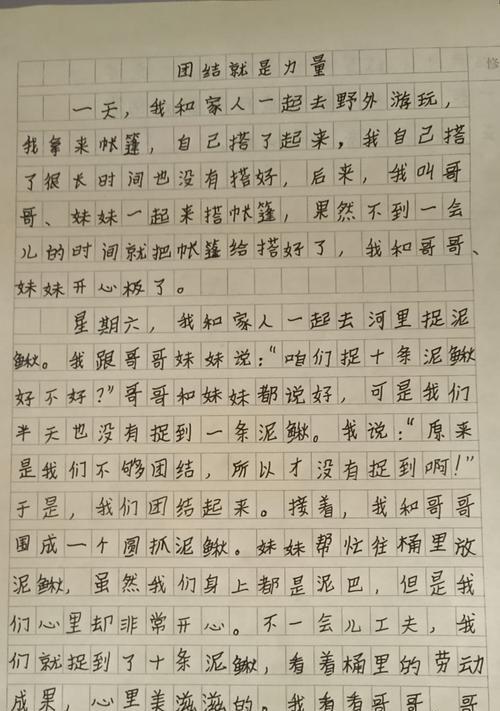 团结就是力量
一天，我和家人一起去野外游玩，
我拿来帐篷，自己搭了起来，我自己搭
了很长时间也没有搭好，后来，我叫哥
哥、妹妹一起来搭帐篷，果然不到一会
儿的时间就把帐篷给搭好了，我和哥哥、
妹妹开心极了。
星期六，我和家人一起去河里捉泥
鳅。我跟哥哥妹妹说：“咱们捉十条泥鳅
好不好？”哥哥和妹妹都说好，可是我们
半天也没有捉到一条泥鳅。我说：“原来
是我们不够团结，所以才没有捉到啊！”
于是，我们团结起来。接着，我和哥哥
围成一个圆抓泥鳅。妹妹帮忙往桶里放
泥鳅，虽然我们身上都是泥巴，但是我
们心里却非常开心。不一会儿工夫，我
们就捉到了十条泥鳅，看着桶里的劳动
成果，心里美滋滋的。我看看哥哥，哥